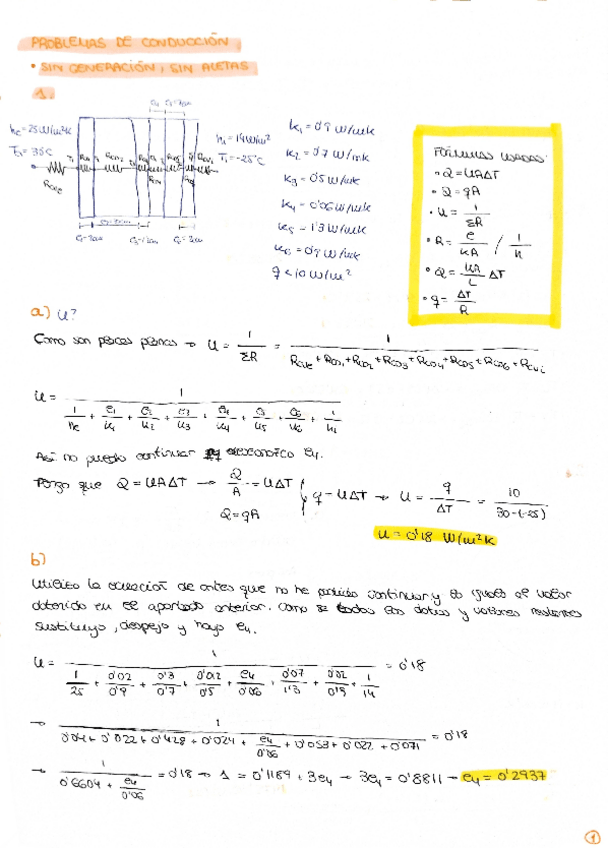 PROBLEMAS DE CONDUCCIÓN
• SIN GENERACIÓN, SIN ALETAS
1.
he = 25 W/m²K
hi = 14 W/m²
Ti = -25°C
k1 = 0'9 W/mK
k2 = 0'7 W/mK
k3 = 0'5 W/mK
k4 = 0'06 W/mK
k5 = 1'3 W/mK
k6 = 0'9 W/mK
q < 10 W/m²
FÓRMULAS USADAS:
• Q = UAΔT
• Q = qA
• U = 1/ΣR
• R = e/kA / 1/h
• Q = kA/L ΔT
• q = ΔT/R
a) U?
Como son placas planas → U = 1/ΣR = 1/Rcve + Rcd1 + Rcd2 + Rcd3 + Rcd4 + Rcd5 + Rcd6 + Rcvi
U = 1/ 1/he + e1/k1 + e2/k2 + e3/k3 + e4/k4 + e5/k5 + e6/k6 + 1/hi
Así no puedo continuar desconozco e4.
Pongo que Q = UAΔT → Q/A = UΔT q = UΔT → U = q/ΔT = 10/30-(-25)
Q = qA
U = 0'18 W/m²K
b)
Utilizo la ecuación de antes que no he podido continuar y lo igualo al valor
obtenido en el apartado anterior. Como se todos los datos y valores restantes
sustituyo, despejo y hayo e4.
U = 1/ 1/25 + 0'02/0'9 + 0'3/0'7 + 0'012/0'5 + e4/0'06 + 0'07/1'3 + 0'02/0'9 + 1/14 = 0'18
→ 1/ 0'04 + 0'022 + 0'428 + 0'024 + e4/0'06 + 0'053 + 0'022 + 0'071 = 0'18
→ 1/ 0'6604 + e4/0'06 = 0'18 → 1 = 0'1189 + 3e4 → 3e4 = 0'8811 → e4 = 0'2937
1